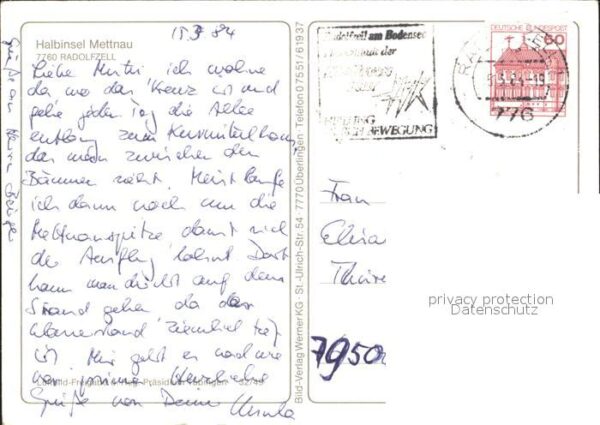 15.3.84
Halbinsel Mettnau
7760 RADOLFZELL
Liebe Mutti, ich wohne
da wo das Kreuz ist und
gehe jeden Tag die Allee
entlang zum Kurmittelhaus,
das man zwischen den
Bäumen sieht. Meist laufe
ich dann noch um die
Mettnauspitze damit sich
der Ausflug lohnt. Dort
kann man direkt auf dem
Strand gehen, da der
Wasserstand ziemlich tief
ist. Mir geht es nach wie
vor prima. Herzliche
Grüße von Deiner Ursula
Bild-Verlag Werner KG · St.-Ulrich-Str. 54 · 7770 Überlingen Telefon 0 75 51/6 19 37
Radolfzell am Bodensee
HEILUNG
DURCH BEWEGUNG
DEUTSCHE BUNDESPOST
60
776
Frau
Elisa
7950
privacy protection
Datenschutz